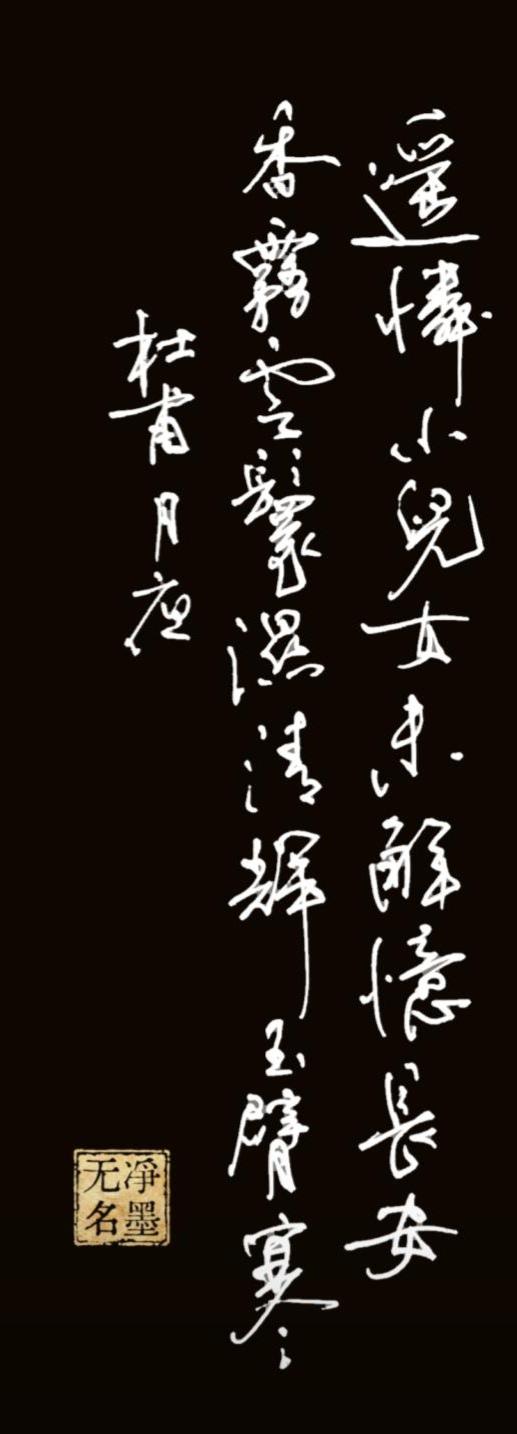 遥憐小兒女未解憶長安
香霧雲鬟濕清輝玉臂寒
杜甫月夜
凈墨
无名